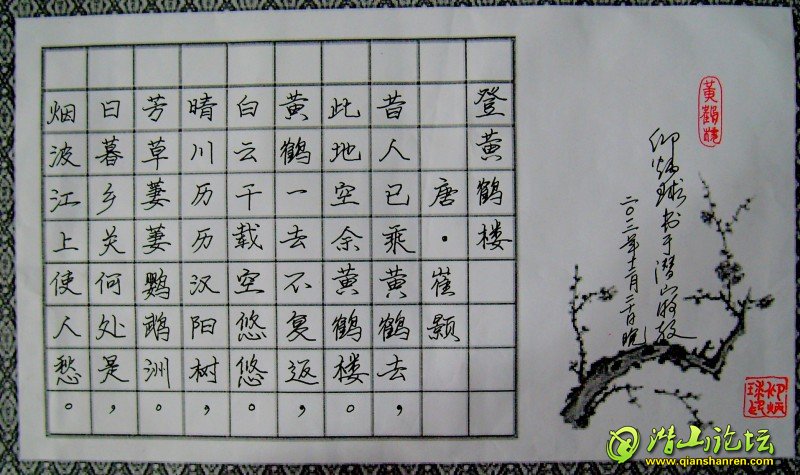 登黄鹤楼
唐·崔颢
昔人已乘黄鹤去,
此地空余黄鹤楼。
黄鹤一去不复返,
白云千载空悠悠。
晴川历历汉阳树,
芳草萋萋鹦鹉洲。
日暮乡关何处是,
烟波江上使人愁。
黄鹤楼
仰炳球书于潜山
仰炳球印
潜山论坛
www.qianshanren.com